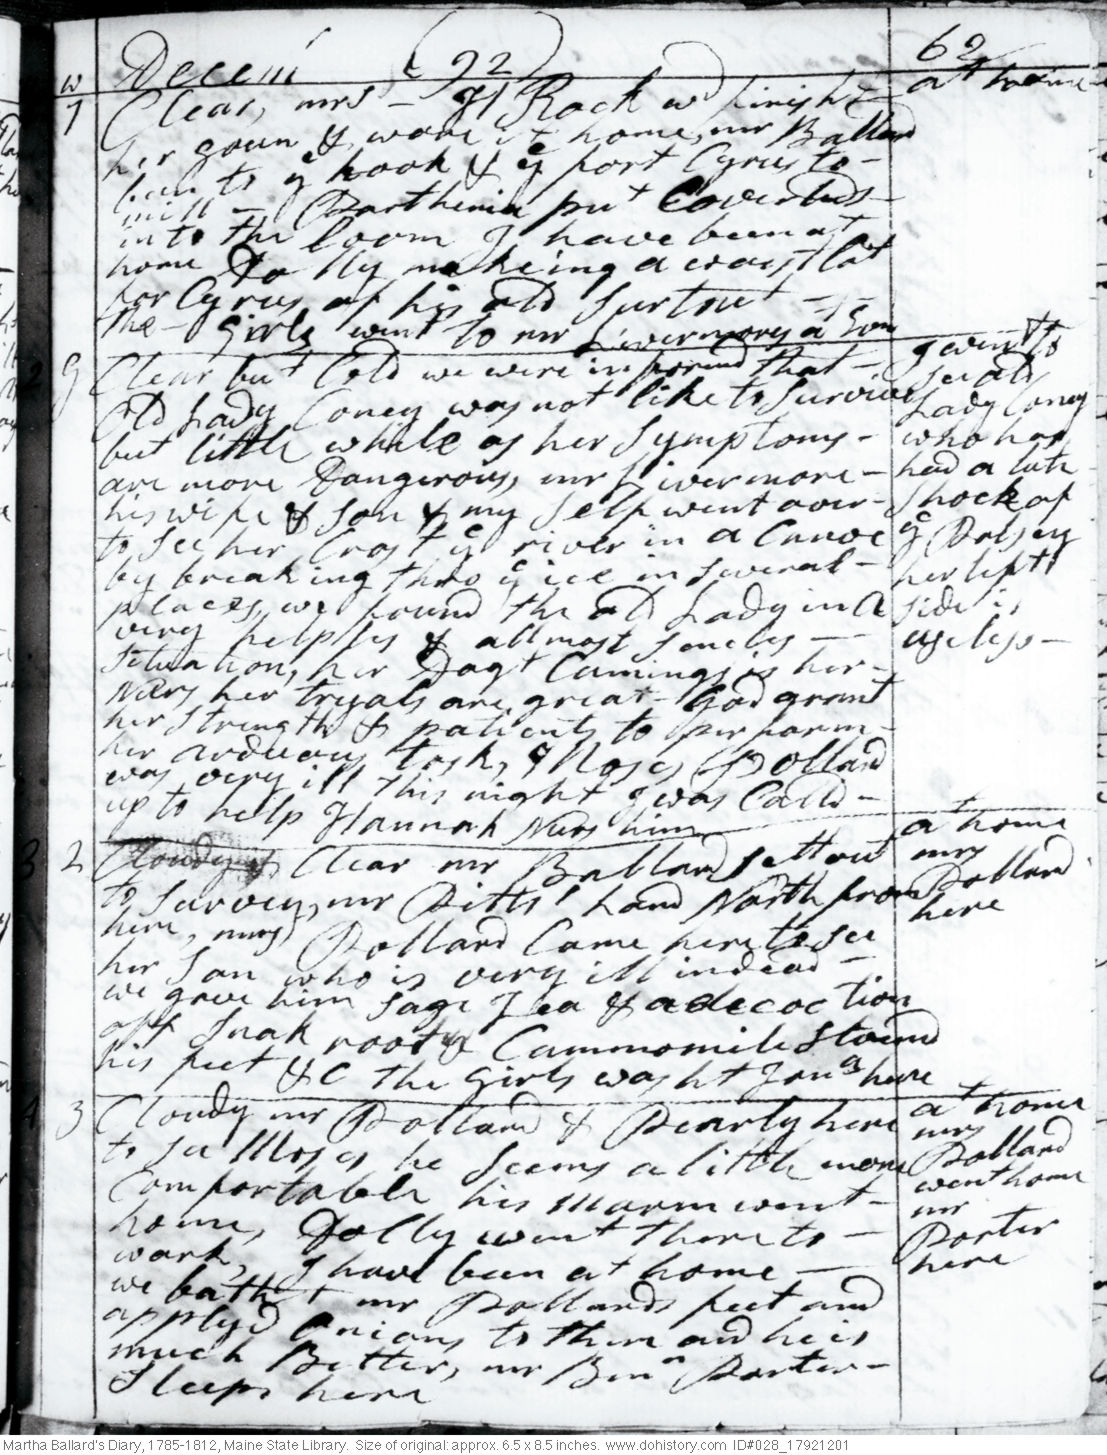 Decem (92) 62
w 1 7 Clear, mrs - St Rock w finisht at home
her goun & wore it home, mr Ballard
been to ye hook & ye fort Cyrus to-
mill - Parthenia put Coverlids -
into the loom I have been at
home Dolly makeing a waistcoat
for Cyrus of his old Surtout -
the - Girls went to mr Livermores a Even
2 g Clear but Cold we were informd that -
Old Lady Coney was not like to Survive
but little while as her Symptoms -
are more Dangerous, mr Livermore -
his wife & Son & my Self went over -
to see her, Crost ye river in a Cannoe
by breaking thro ye ice in several -
places, we found the old Lady in a
very helpless & allmost senceles -
situation, her Dagt Cumings is her -
Nurs her tryals are great God grant
her strength & patients to perform -
her arduous task, Moses Pollard
was very ill this night I was Calld -
up to help Hannah Nurs him
I went to
see old
Lady Coney
who has
had a late
Shock of
ye Palsey
her left
side is
useless -
3 2 Cloudy Clear mr Ballard sett out
to survey, mr Pitts' land North from
here, mrs Pollard Came here to see
her Son who is very ill indead -
we gave him Sage Tea & a decoction
off Snak root & Cammomile Stoamd
his feet &C the Girls washt Jona here
at home
mrs
Pollard
here
4 3 Cloudy mr Pollard & Pearly here
to see Moses he seems a little more
Comfortable his marm went -
home, Dolly went there to -
work, I have been at home -
we batht mr Pollards feet and
applyd Onions to them and he is
much Better, mr Benn Porter -
Sleeps here
at home
mrs
Pollard
went home
mr
Porter
here
Martha Ballard's Diary, 1785-1812, Maine State Library. Size of original: approx. 6.5 x 8.5 inches. www.dohistory.com ID#028_17921201